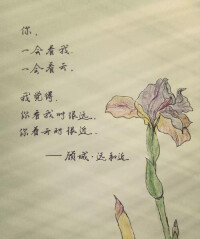 你,
一会看我,
一会看云.
我觉得,
你看我时很远,
你看云时很近.
——顾城·远和近